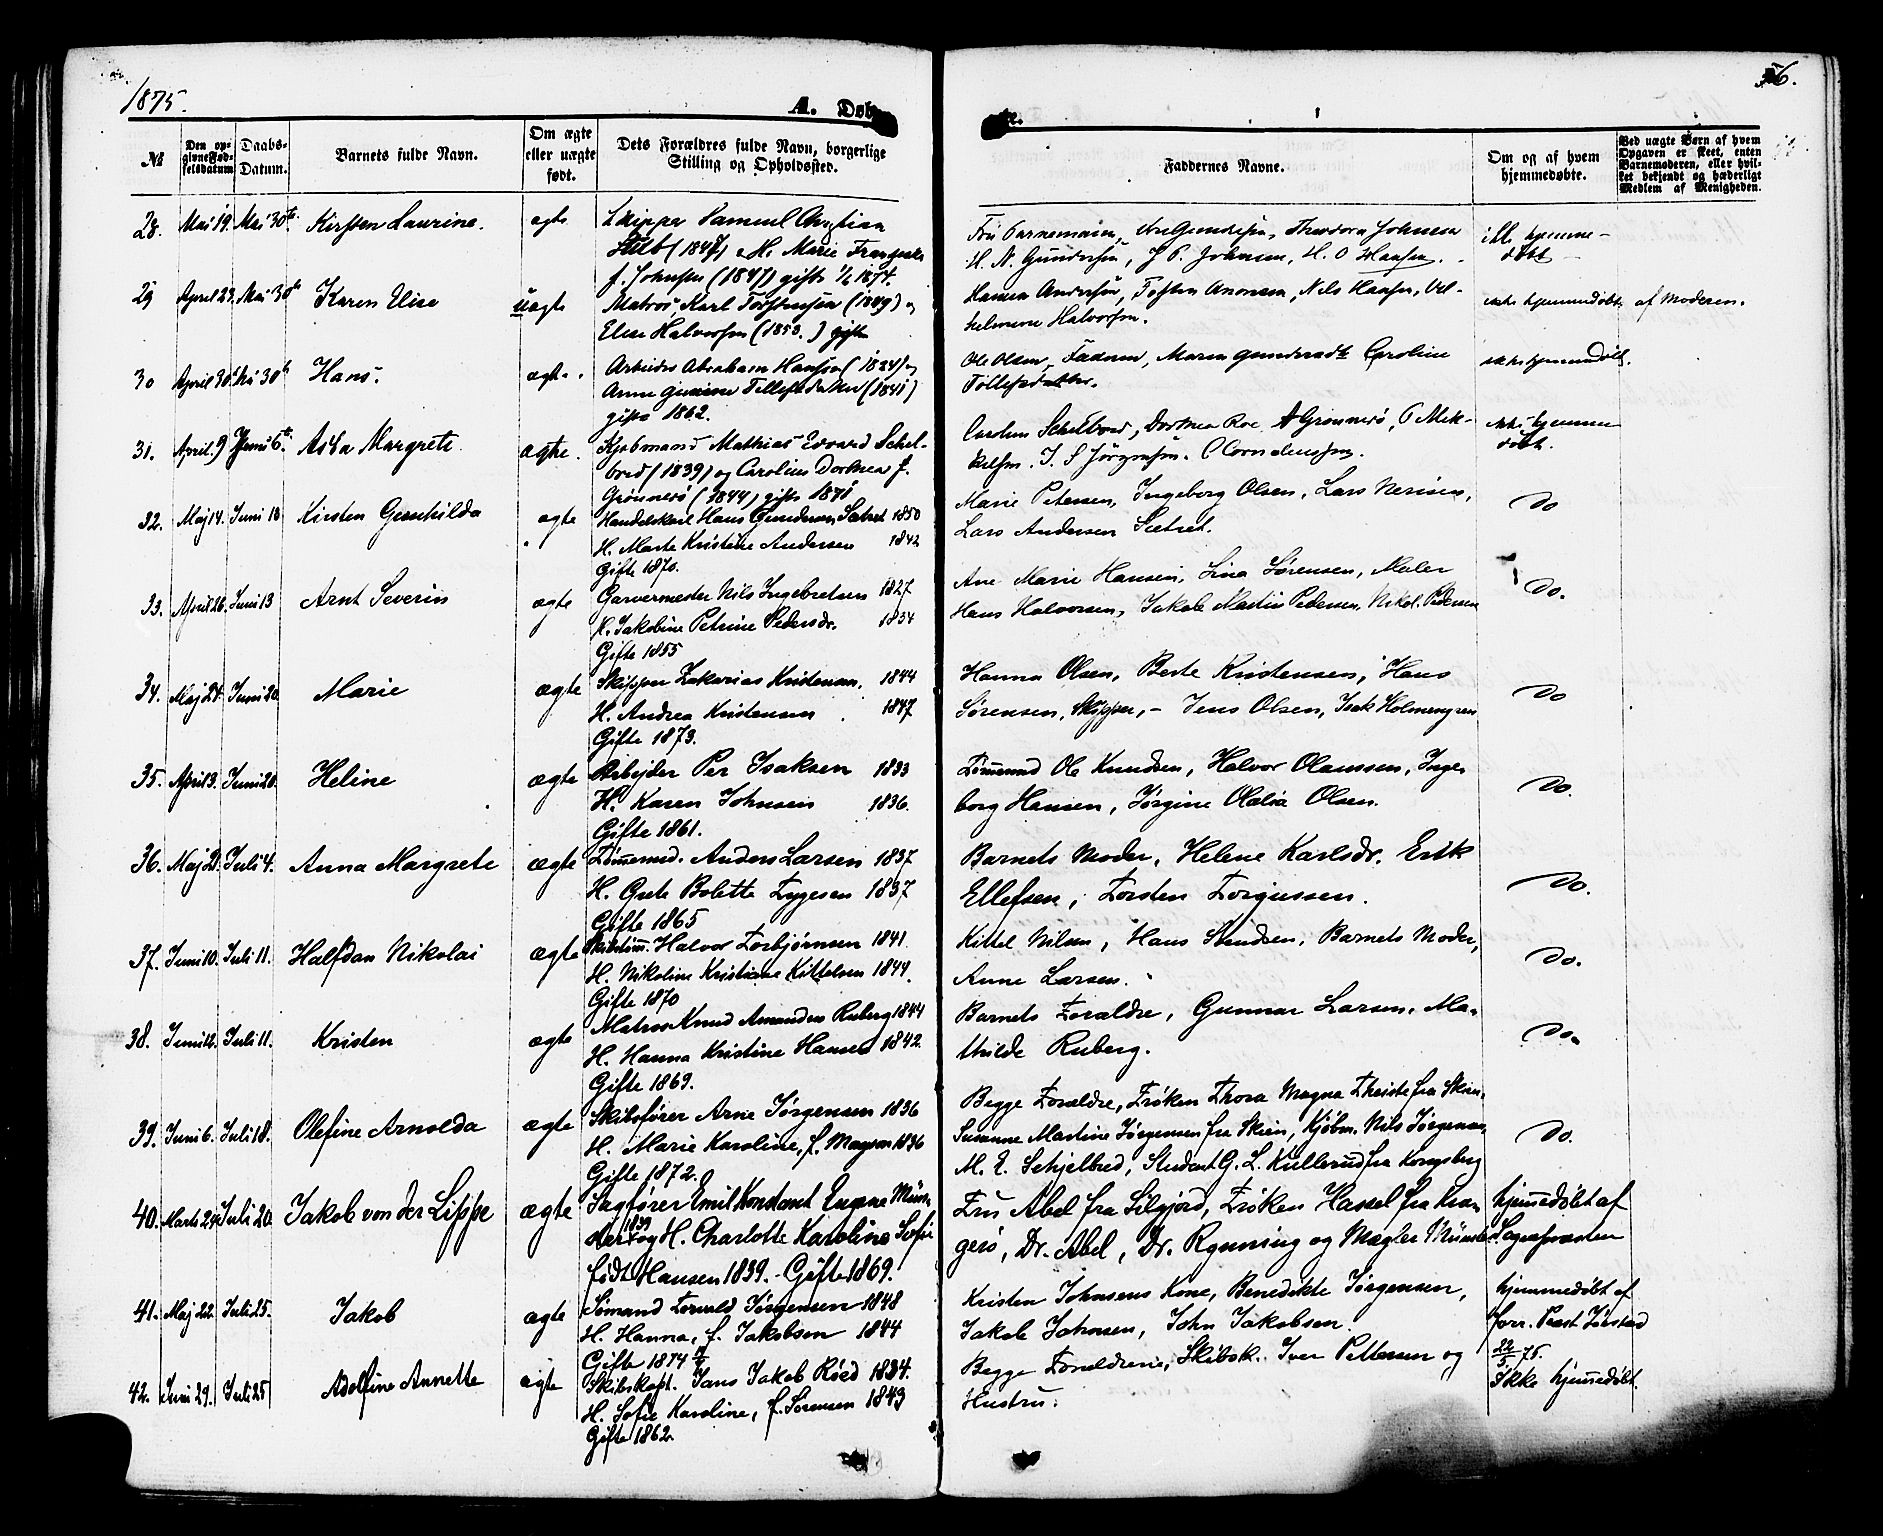 1875.
A. Døb
56.
№
Den opgivne Fødselsdatum
Daabs-Datum.
Barnets fulde Navn.
Om ægte eller uægte født.
Dets Forældres fulde Navn, borgerlige Stilling og Opholdssted.
Faddernes Navne.
Om og af hvem hjemmedøbte.
Ved uægte Børn af hvem Opgaven er skeet, enten Barnemoderen, eller hvilket bekjendt og hæderligt Medlem af Menigheden.
28. Mai 19. Mai 30te Kirsten Laurine. ægte Skipper Samuel Christian
(1847) M. Marie
f. Johnsen (1847) gifte 1874.
Theodora Johnsen
H. N. Gundersen, J. P. Johnsen, H. O. Hansen.
ikke hjemme-
døbt
29 April 23. Mai 30te Karen Elise uægte Matros Karl (1849) og
Elise Halvorsen (1853.) gifte
Hansen Andersen, Nils Hansen, Vil-
helmine Halvorsen.
ikke hjemmedøbt af Moderen.
30 April 30 Mai 30te Hans. ægte. Arbeider Abraham Hansen (1834) og
Anne Tellefsdatter (1841)
gifte 1862.
Ole Olsen, Faderen, Maren Caroline
Tollefsdatter.
ikke hjemmedøbt.
31. April 9 Juni 6te Asta Margrete ægte. Kjøbmand Mathias Edvard Schel-
bred (1839) og Caroline Dorthea f.
Grønnerø (1844) gifte 1871
Caroline Schelbred, Dorthea Roe, A Grønnerø, P Mik-
kelsen. J. S Jørgensen. C Corneliussen.
ikke hjemme
døbt.
32. Maj 14. Juni 13 Kirsten Gunhilda ægte Handelskarl Hans Gundersen Sætret 1850
H. Marte Kristine Andersen 1842
Gifte 1870.
Marie Petersen, Ingeborg Olsen, Lars Iversen,
Lars Andersen Sætret.
Do
33. April 26. Juni 13 Arnt Severin ægte Garvermester Nils Ingebretsen 1827
H. Jakobine Petrine Pedersdr. 1834
Gifte 1855
Ane Marie Hansen, Lina Sørensen, Maler
Hans Halvorsen, Jakob Martin Pedersen, Nikol. Pedersen
Do.
34. Maj 24. Juni 20. Marie ægte Skipper Zakarias Kristensen. 1844
H. Andrea Kristensen 1847
Gifte 1873.
Hanna Olsen, Berte Kristensen, Hans
Sørensen, Skipper, - Jens Olsen, Isak Holmengren
Do
35. April 3. Juni 20. Heline ægte Arbejder Per Isaksen 1833
H. Karen Johnsen 1836.
Gifte 1861.
Tømmermd Ole Knudsen, Halvor Olaussen, Inge-
borg Hansen, Jørgine Olalia Olsen.
Do.
36. Maj 21. Juli 4. Anna Margrete ægte Tømmermd. Anders Larsen 1837
H. Grete Bolette Tygesen 1837
Gifte 1865
Barnets Moder, Helene Karlsdr. Erik
Ellefsen, Torsten Torgiussen.
Do.
37. Juni 10. Juli 11. Halfdan Nikolai ægte Skibstøm. Halvor Torbjørnsen 1841.
H. Nikoline Kristiane Kittelsen 1844.
Gifte 1870
Kittel Nilsen, Hans Svendsen, Barnets Moder,
Anne Larsen.
Do.
38. Juni 12. Juli 11. Kristen ægte Matros Knud Amandus Ruberg 1844
H. Hanna Kristine Hansen 1842.
Gifte 1869.
Barnets Forældre, Gunnar Larsen, Ma-
thilde Ruberg.
Do.
39. Juni 6. Juli 18. Olefine Arnolda ægte Skibsfører Arne Jørgensen 1836
H. Marie Karoline, f. Magnson 1836
Gifte 1872.
Begge Forældre, Frøken Thora Magna Thriste fra Skien,
Susanne Martine Jørgensen fra Skien, Kjøbm. Nils Jørgensen
M. E. Schjelbred, Student G. L. Kullerud fra Kongsberg
Do.
40. Marts 24. Juli 20. Jakob von der Lippe ægte Sagfører Emil Konstant Eugene Mün-
ster 1839 og H. Charlotte Karoline Sofie
født Hansen 1839. - Gifte 1869.
Fru Abel fra Silgjord, Frøken Hassel fra Kra-
gerø, Dr. Abel, Dr. Rynning og Mægler Münster
hjemmedøbt af
Sognepræsten
41. Maj 22. Juli 25. Jakob ægte Sømand Torvald Jørgensen 1848
H. Hanna, f. Jakobsen 1844
Gifte 1874
Kristen Johnsens Kone, Benedikte Jørgensen,
Jakob Johnsen, John Jakobsen
hjemmedøbt af
forr. Præst Tørstad
22/5 75.
42. Juni 29. Juli 25 Adolfine Annette ægte Skibskapt. Jans Jakob Røed 1834.
H. Sofie Karoline, f. Sørensen 1843
Gifte 1862
Begge Forældrene, Skibsk. Iver Pettersen og
Hustru.
Ikke hjemmedøbt.